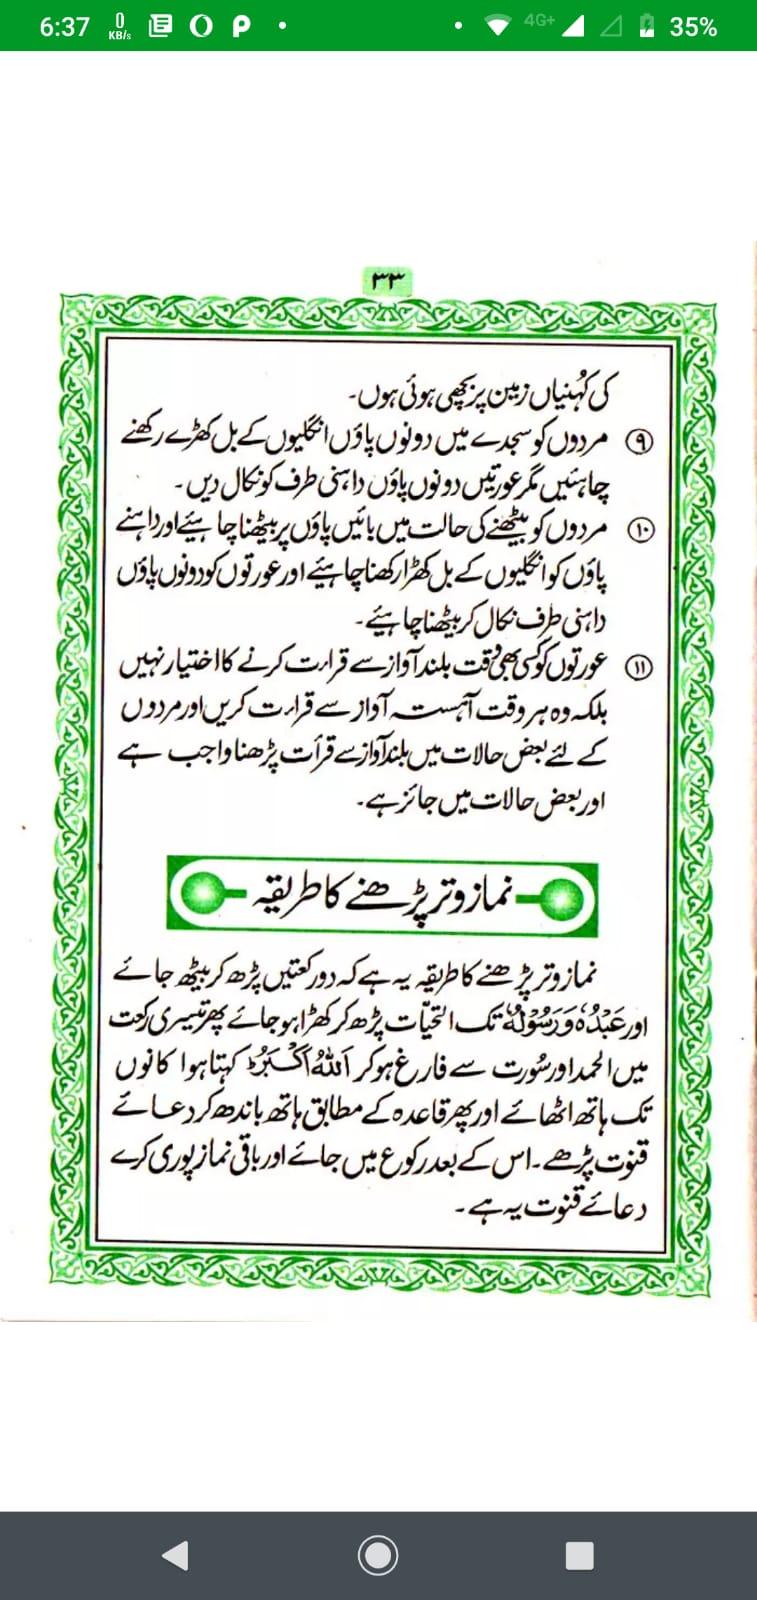 6:37
0
KB/s
4G+
35%
۳۳
کی کہنیاں زمین پر بچھی ہوئی ہوں۔
۹ مردوں کو سجدے میں دونوں پاؤں انگلیوں کے بل کھڑے رکھنے
چاہئیں مگر عورتیں دونوں پاؤں داہنی طرف کو نکال دیں۔
۱۰ مردوں کو بیٹھنے کی حالت میں بائیں پاؤں پر بیٹھنا چاہیئے اور داہنے
پاؤں کو انگلیوں کے بل کھڑا رکھنا چاہیئے اور عورتوں کو دونوں پاؤں
داہنی طرف نکال کر بیٹھنا چاہیئے۔
۱۱ عورتوں کو کسی بھی وقت بلند آواز سے قرارت کرنے کا اختیار نہیں
بلکہ وہ ہر وقت آہستہ آواز سے قرارت کریں اور مردوں
کے لئے بعض حالات میں بلند آواز سے قرأت پڑھنا واجب ہے
اور بعض حالات میں جائز ہے۔
نماز وتر پڑھنے کا طریقہ
نماز وتر پڑھنے کا طریقہ یہ ہے کہ دو رکعتیں پڑھ کر بیٹھ جائے
اور عَبْدُہٗ وَرَسُوْلُہٗ تک التحیّات پڑھ کر کھڑا ہو جائے پھر تیسری رکعت
میں الحمد اور سُورت سے فارغ ہو کر اَللّٰہُ اَکْبَرُ کہتا ہوا کانوں
تک ہاتھ اٹھائے اور پھر قاعدہ کے مطابق ہاتھ باندھ کر دعائے
قنوت پڑھے۔ اس کے بعد رکوع میں جائے اور باقی نماز پوری کرے
دعائے قنوت یہ ہے۔